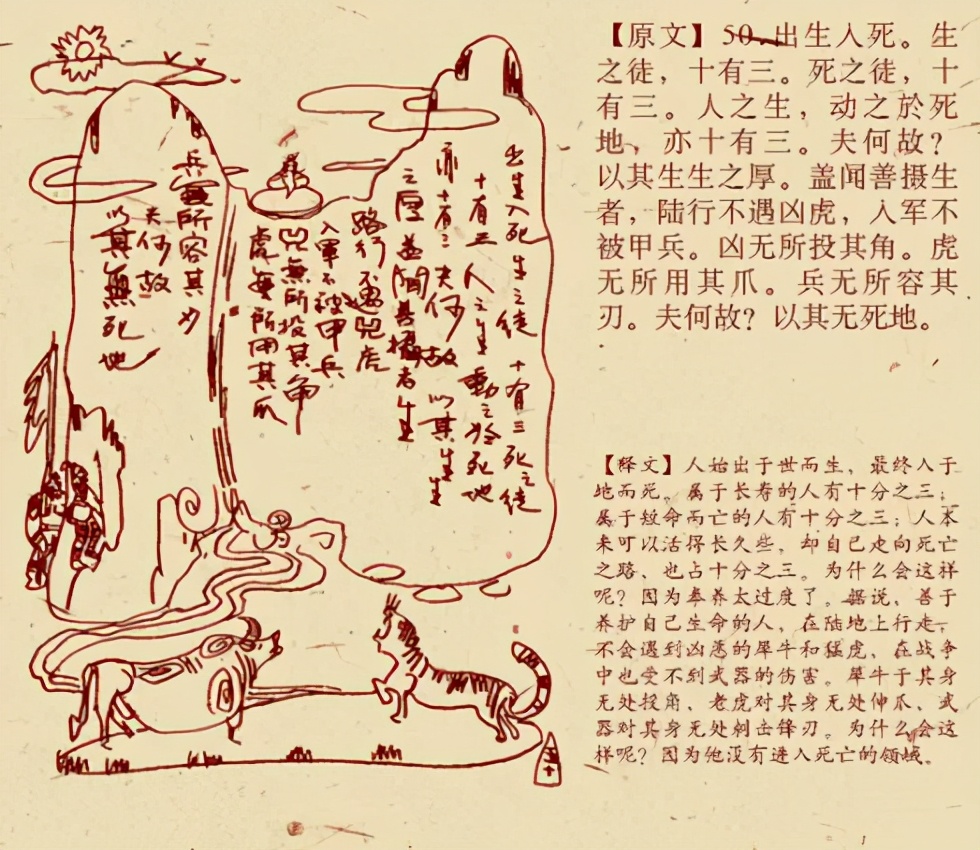 【原文】50.出生入死。生
之徒，十有三。死之徒，十
有三。人之生，动之於死
地，亦十有三。夫何故？
以其生生之厚。盖闻善摄生
者，陆行不遇凶虎，入军不
被甲兵。凶无所投其角。虎
无所用其爪。兵无所容其
刃。夫何故？以其无死地。
【释文】人始出于世而生，最终入于
地而死。属于长寿的人有十分之三；
属于短命而亡的人有十分之三；人本
来可以活得长久些，却自己走向死亡
之路，也占十分之三。为什么会这样
呢？因为奉养太过度了。据说，善于
养护自己生命的人，在陆地上行走，
不会遇到凶恶的犀牛和猛虎，在战争
中也受不到武器的伤害。犀牛于其身
无处投角、老虎对其身无处伸爪、武
器对其身无处刺击锋刃。为什么会这
样呢？因为他没有进入死亡的领域。
出生入死 生之徒 十有三 死之徒
十有三 人之生 動之於死地
亦十有三 夫何故 以其生生
之厚 盖闻善攝者生
路行不遇兕虎
入軍不被甲兵
兕無所投其角
虎無所用其爪
兵無所容其刃
夫何故
以其無死地
五十